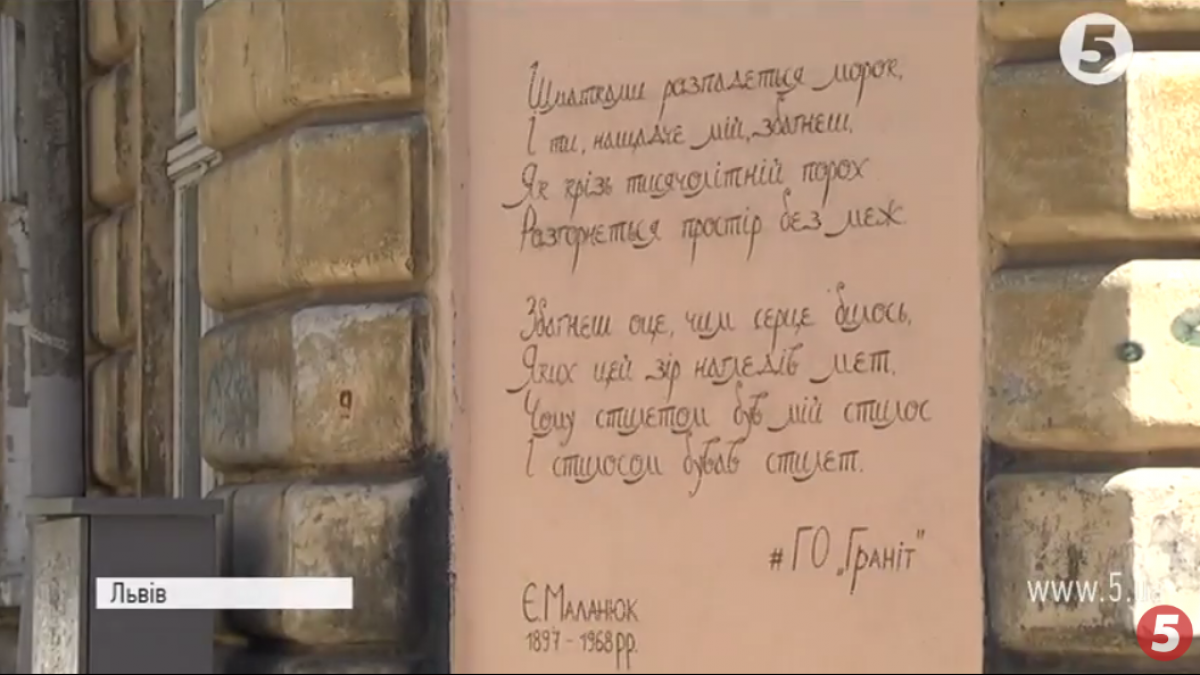 5
Шматками розпадеться морок,
І ти, нащадче мій, збагнеш,
Як крізь тисячолітній порох
Розгорнеться простір без меж.
Збагнеш оце, чим серце билось,
Яких цей зір нагледів мет,
Чому стилетом був мій стилос
І стилосом бував стилет.
#ГО „Граніт"
Є. Маланюк
1897 - 1968 рр.
9
Львів
www.5.
5